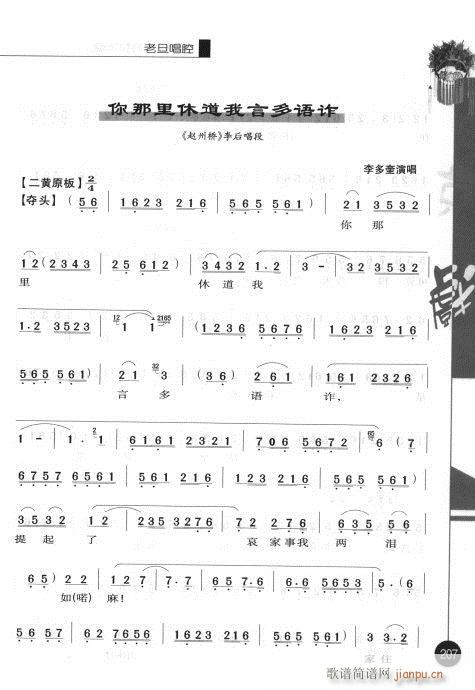 老旦唱腔
你那里休道我言多语诈
《赵州桥》李后唱段
李多奎演唱
【二黄原板】2/4
【夺头】 (56 | 1623 216 | 565 561) | 21 3532 |
你 那
12(2343 | 25 612) | 3432 1.2 | 3 - 32 3532 |
里 休 道 我
1.2 3523 | 12 1 2165 1 | 1235 6276 | 1623 216 |
565 561) | 21 3 | (36) 261 | 161 2326 |
言 多 语 诈,
1 - | 1.2 1 | 6161 2321 | 706 5672 | 6 (7 |
6757 6561 | 5672 6561 | 5235 2321 | 7276 5672 |
3532 12 | 235 3276 | 72 2276 | 635 656 |
提 起 了 哀 家 事 我 两 泪
65) 22 | 127 | 7.7 6.276 | 6.6 5653 | 5.(6 |
如(喏) 麻!
1623 216 | 5672 6561 | 5235 2321 | 615) | 3 3.2 |
家 住
207
歌谱简谱网
jianpu.cn